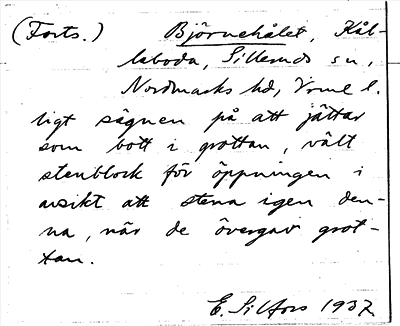 (Forts.) Björnehålet, Kål-
laboda, Silleruds sn,
Nordmarks hd, Vrml l.
ligt sägnen på att jättar
som bott i grottan, vält
stenblock för öppningen i
avsikt att stena igen den-
na, när de övergav grot-
tan.
E. Silfors 1937